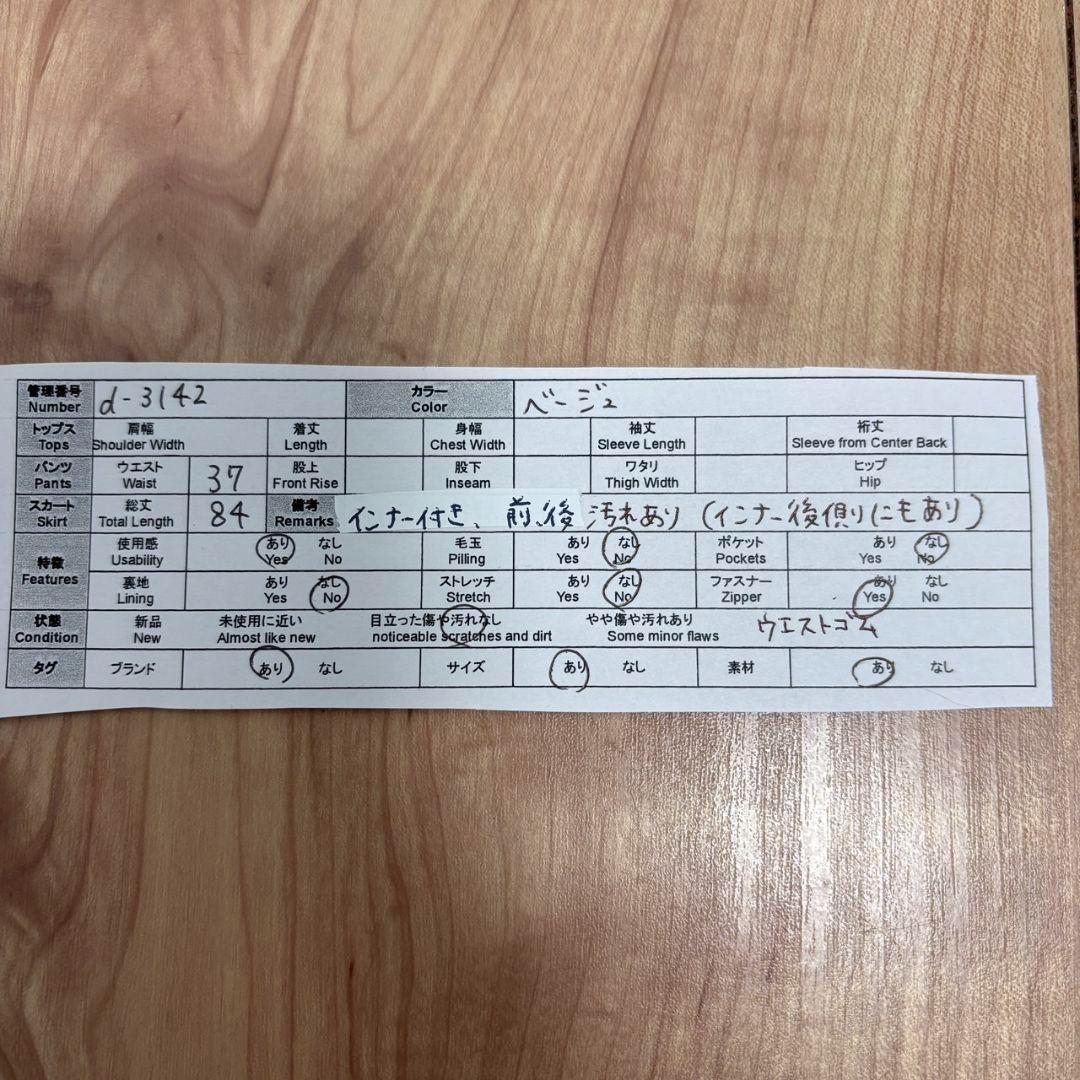 管理番号 d-3142 カラー ベージュ
Number Color
トップス 肩幅 着丈 身幅 袖丈 裄丈
Tops Shoulder Width Length Chest Width Sleeve Length Sleeve from Center Back
パンツ ウエスト 37 股上 股下 ワタリ ヒップ
Pants Waist Front Rise Inseam Thigh Width Hip
スカート 総丈 84 備考 インナー付き、前、後 汚れあり (インナー後側りにもあり)
Skirt Total Length Remarks
特徴 使用感 あり なし 毛玉 あり なし ポケット あり なし
Features Usability Yes No Pilling Yes No Pockets Yes No
裏地 あり なし ストレッチ あり なし ファスナー あり なし
Lining Yes No Stretch Yes No Zipper Yes No
状態 新品 未使用に近い 目立った傷や汚れなし やや傷や汚れあり ウエストゴム
Condition New Almost like new noticeable scratches and dirt Some minor flaws
タグ ブランド あり なし サイズ あり なし 素材 あり なし